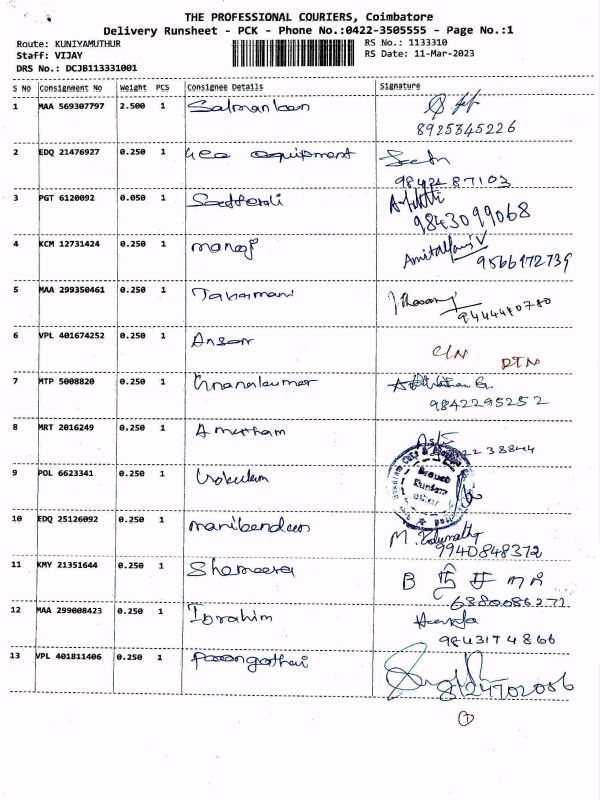 THE PROFESSIONAL COURIERS, Coimbatore
Delivery Runsheet - PCK - Phone No.:0422-3505555 - Page No.:1
Route: KUNIYAMUTHUR
RS No.: 1133310
Staff: VIJAY
RS Date: 11-Mar-2023
DRS No.: DCJB113331001
S No Consignment No Weight PCS Consignee Details Signature
1 MAA 569307797 2.500 1 Salman
8925345226
2 EDQ 21476927 0.250 1 equipment
98424 87103
3 PGT 6120092 0.050 1
9843099068
4 KCM 12731424 0.250 1 manoj
9566172739
5 MAA 299350461 0.250 1
9444440780
6 VPL 401674252 0.250 1 Ansar
C/N
7 MTP 5008820 0.250 1 Gnanakumar
9842295252
8 MRT 2016249 0.250 1 Amutham
22 38844
9 POL 6623341 0.250 1 Gokulam
10 EDQ 25126092 0.250 1
9940848372
11 KMY 21351644 0.250 1 Shameera
6380086271
12 MAA 299008423 0.250 1 Ibrahim
9843174866
13 VPL 401811406 0.250 1 Poongothai
8124702056